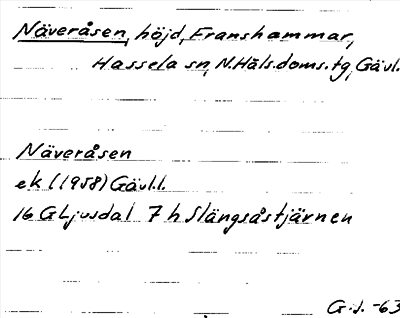 Näveråsen, höjd, Franshammar,
Hassela sn, N.Häls.doms.tg, Gävl.
Näveråsen
ek (1958) Gävl.l.
16 G Ljusdal 7 h Slängsåstjärnen
G.J. -63